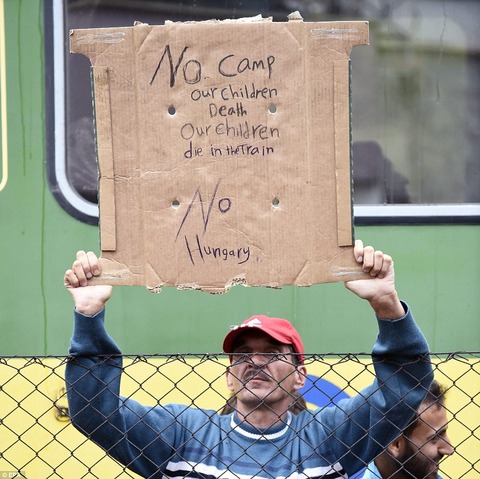 No Camp
our children
Death
our children
die in the train
No
Hungary.